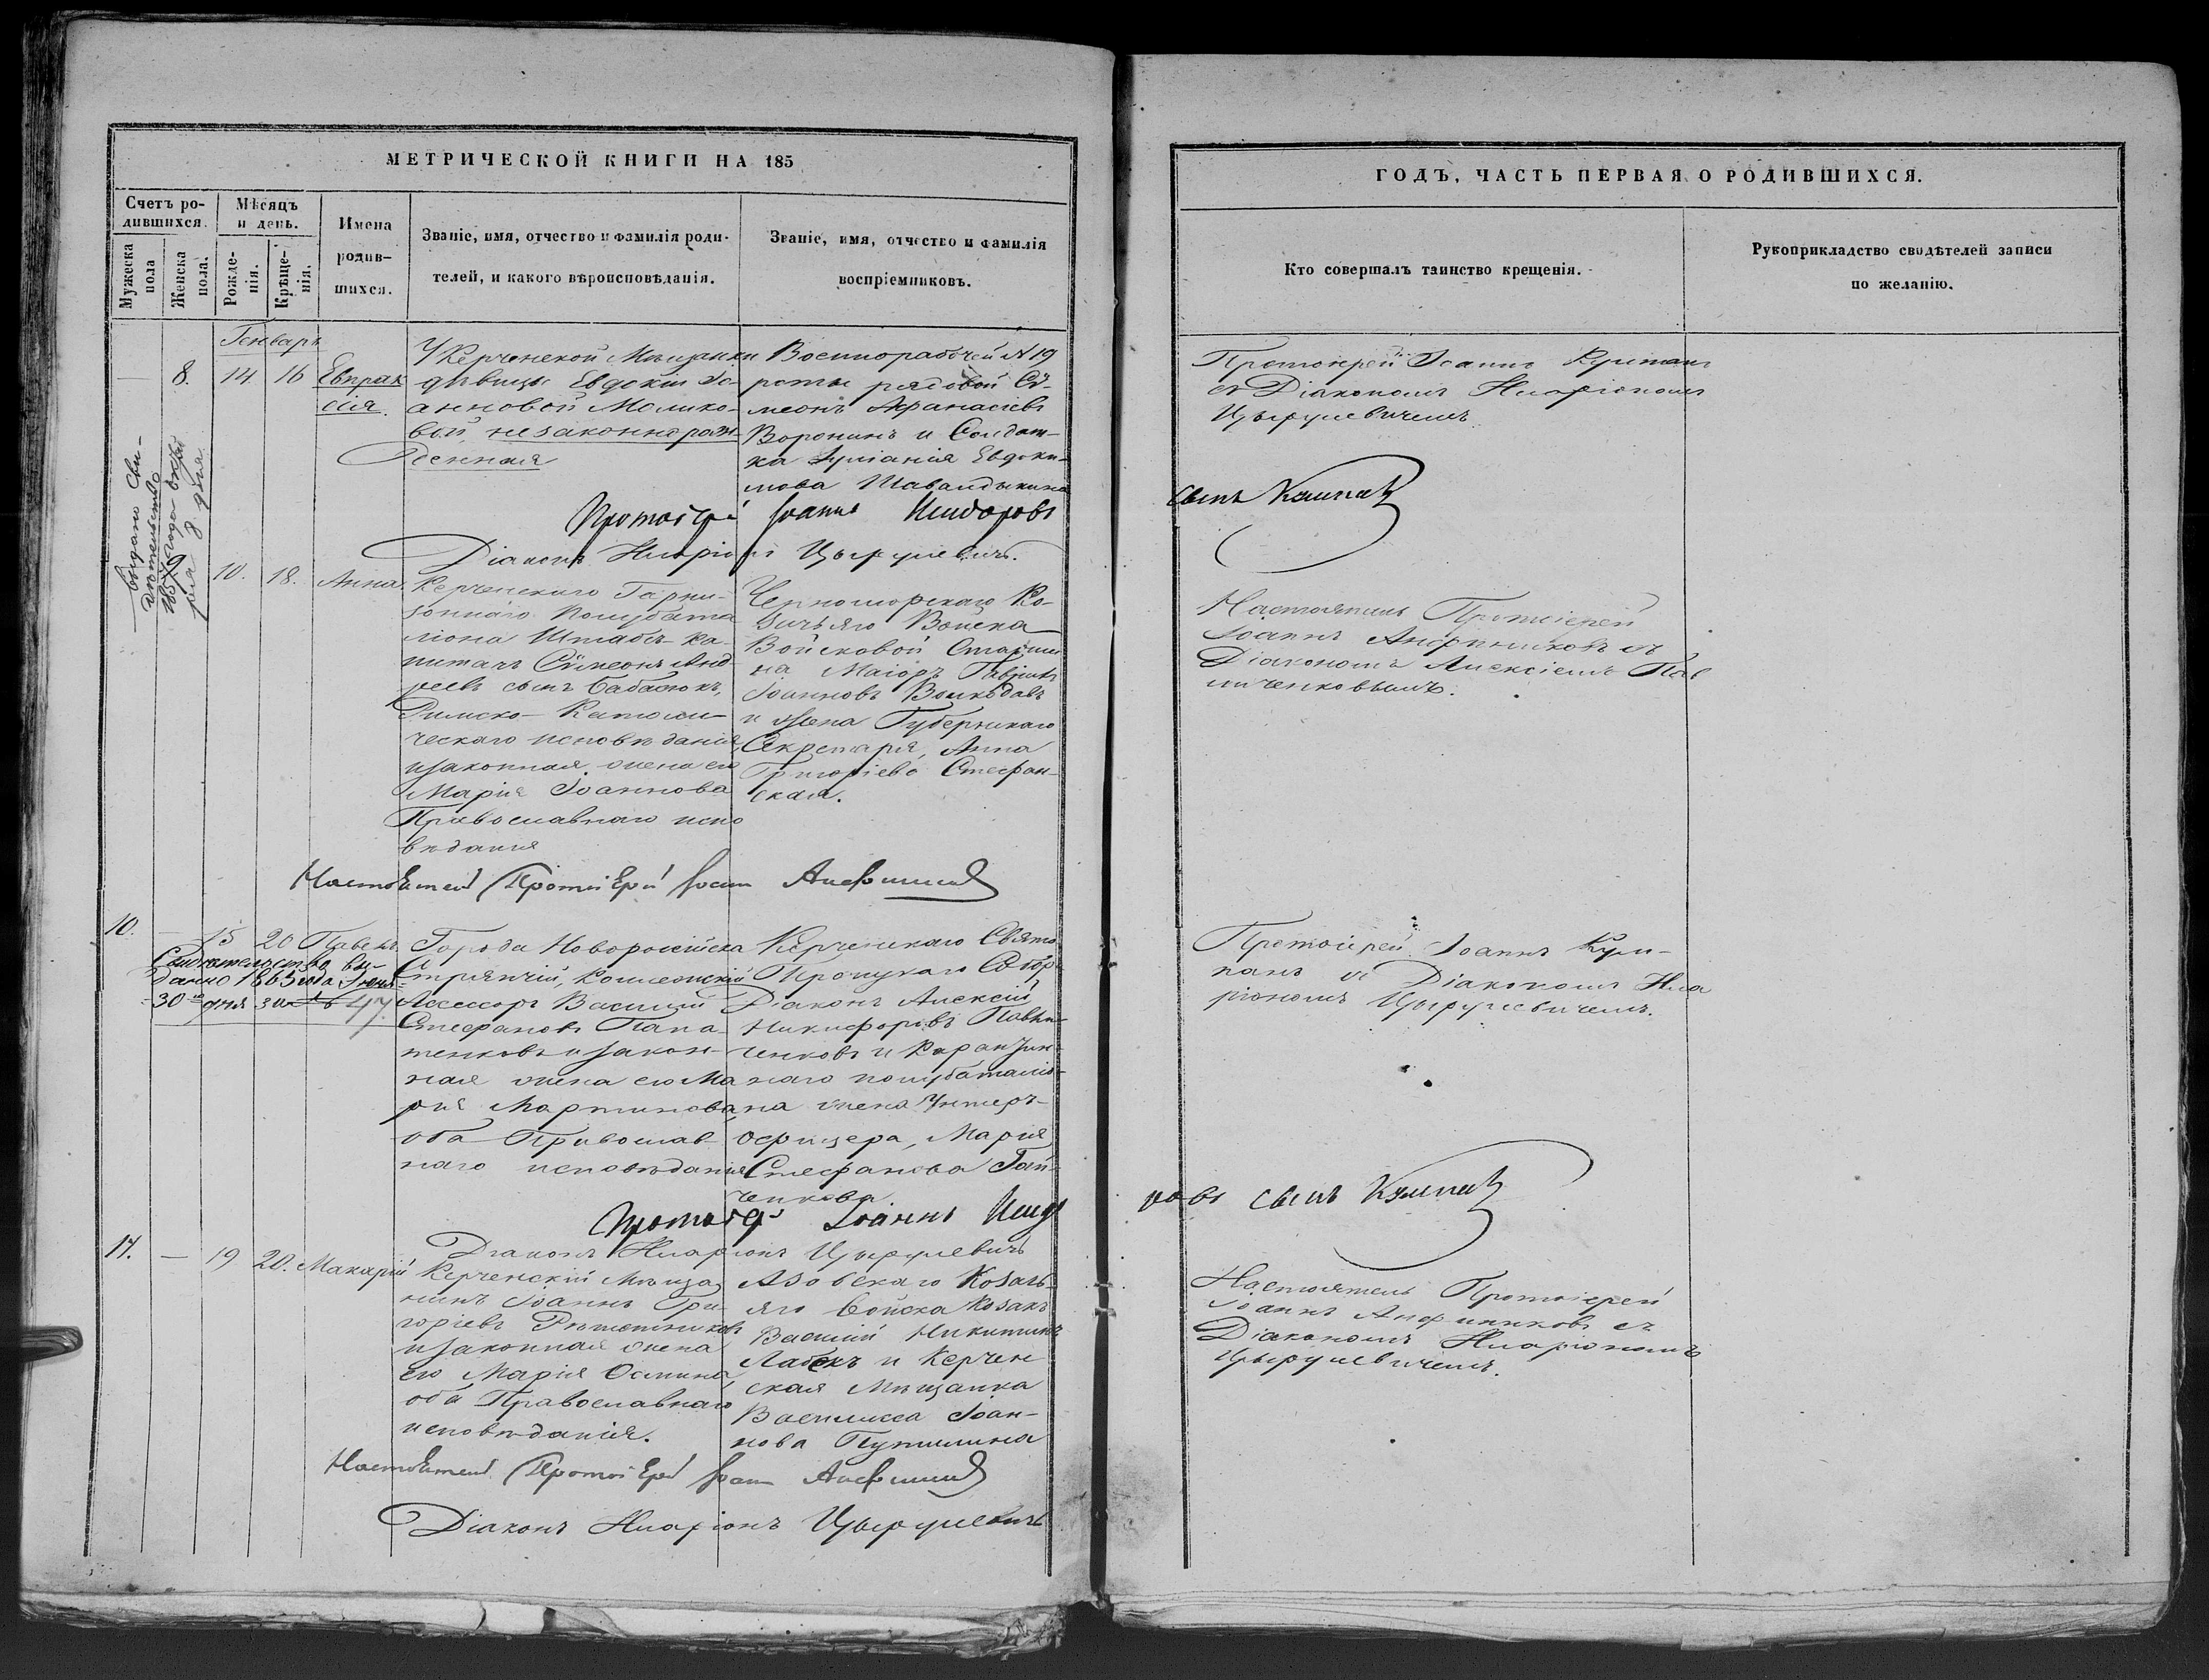 МЕТРИЧЕСКОЙ КНИГИ НА 185
Счетъ ро-
дившихся.
Мѣсяцъ
и день.
Мужеска
пола
Женска
пола.
Рожде-
нія.
Крѣще-
нія.
Имена
родив-
шихся.
Званіе, имя, отчество и фамилія роди-
телей, и какого вѣроисповѣданія.
Званіе, имя, отчество и фамилія
воспріемниковъ.
Генварь
— 8. 14. 16
Евпрак
сія.
У Керченской Мѣщанки
дѣвицы Евдокіи Іо-
анновой Мелико-
вой, незаконнорож-
денная
Военнорабочей № 19
роты рядовой Сѵ-
меонъ Афанасіевъ
Воронинъ и Солдат-
ка Іуліанія Евдоки-
мова Шавалдыкина
Протоіерей Іоаннъ Исидоровъ
Діаконъ Иларіонъ Цырулевичъ.
Выдано сви-
дѣтельство
дня
10. 18. Анна.
Керченскаго Гарни-
зоннаго Полубата
ліона Штабсъ-Ка-
питанъ Сѵмеонъ Анд-
реевъ сынъ Бабасюкъ,
Римско-Католи-
ческаго исповѣданія,
и законная жена его
Марія Іоаннова
Православнаго испо
вѣданія
Черноморскаго Ко-
зачьяго Войска
Войсковой Старши
на Маіоръ Гавріилъ
Іоанновъ
и жена Губернскаго
Секретаря, Анна
Григоріева Стефан-
ская.
Настоятель Протоіерей Іоаннъ
10. — 15 20 Павелъ.
Свидѣтельство вы-
дано 1863 года Іюня
30го дня за № 47
Города Новороссійска
Стряпчій, Коллежскій
Ассесоръ Василій
Стефановъ Папа-
тенковъ и закон-
ная жена его Ма
рія Мартинова
оба Православ-
наго исповѣданія
Керченскаго Свято
Троицкаго Собор
Діаконъ Алексій
Никифоровъ Павли-
ченковъ и Карантин-
наго полубаталіо-
на жена Унтеръ-
офицера, Марія
Стефанова Гай-
ченкова.
Протоіер Іоаннъ Исидо
Діаконъ Иларіонъ Цырулевичъ
11. — 19 20. Макарій
Керченскій Мѣща
нинъ Іоаннъ Гри-
горіевъ Рѣшетниковъ
и законная жена
его Марія Осипина,
оба Православнаго
исповѣданія.
Азовскаго Козачь-
яго Войска Козакъ
Василій Никитинъ
Лабекъ и Керчен
ская Мѣщанка
Василисса Іоан-
нова Путилина
Настоятель Протоіерей Іоаннъ
Діаконъ Иларіонъ Цырулевичъ
ГОДЪ, ЧАСТЬ ПЕРВАЯ О РОДИВШИХСЯ.
Кто совершалъ таинство крещенія.
Рукоприкладство свидѣтелей записи
по желанію.
Протоіерей Іоаннъ Кумпанъ
съ Діакономъ Иларіономъ
Цырулевичемъ.
сынъ Кумпанъ
Настоятель Протоіерей
Іоаннъ Анфиниковъ съ
Діакономъ Алексіемъ Пав
личенковымъ.
Протоіерей Іоаннъ Кум-
панъ съ Діакономъ Ила
ріономъ Цырулевичемъ.
ровъ сынъ Кумпанъ
Настоятель Протоіерей
Іоаннъ Анфиниковъ съ
Діакономъ Иларіономъ
Цырулевичемъ.